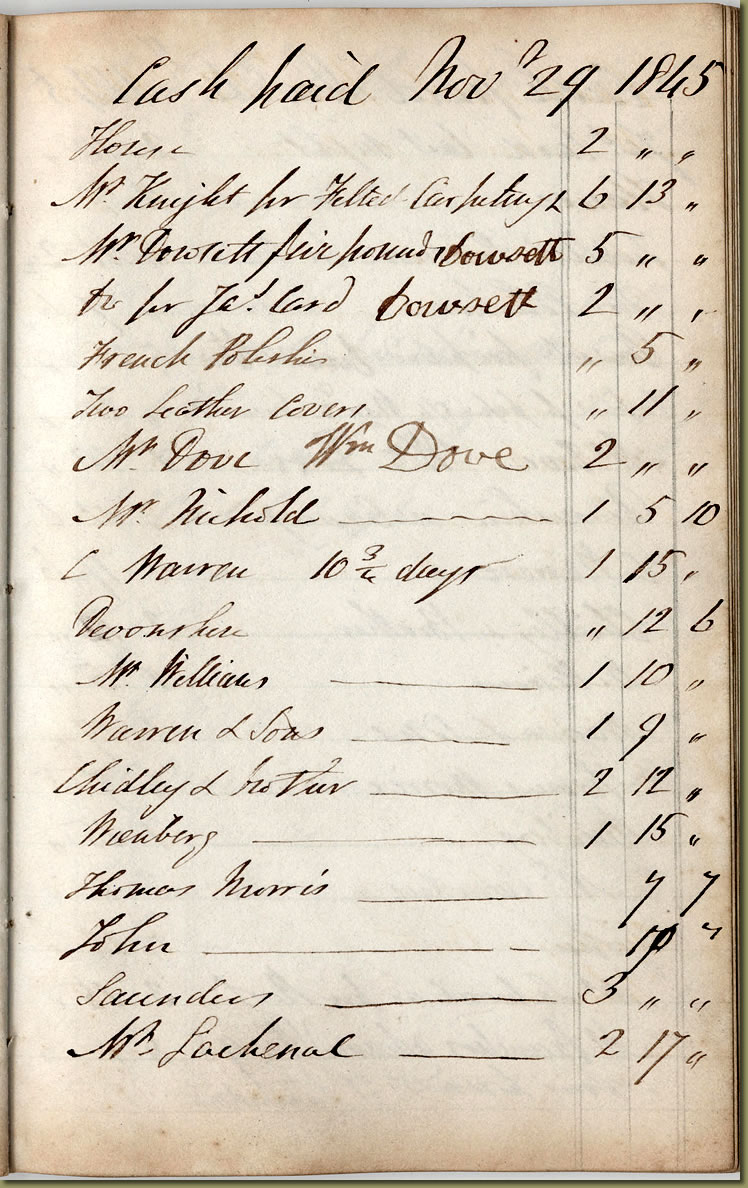 Cash paid Novr 29 1845
House 2 " "
Mr Knight for Felted Carpeting & 6 13 "
Mr Dowsett five pounds Dowsett 5 " "
Do for Jas. Card Dowsett 2 " "
French Polisher " 5 "
Two Leather Covers " 11 "
Mr Dove Wm Dove 2 " "
Mr Nickold 1 5 10
C Warren 10 3/4 days 1 15 "
Devonshire " 12 6
Mr Williams 1 10 "
Warren & Sons 1 9 "
Chidley & Brother 2 12 "
Wienberg 1 15 "
Thomas Morris 7 7
John "
Saunders 3 " "
Mr Lachenal 2 17 "